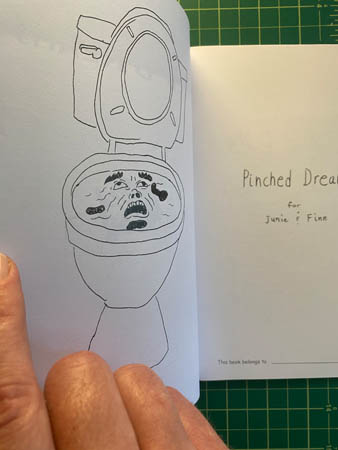 Pinched Drea
for
Junie & Finn
This book belongs to